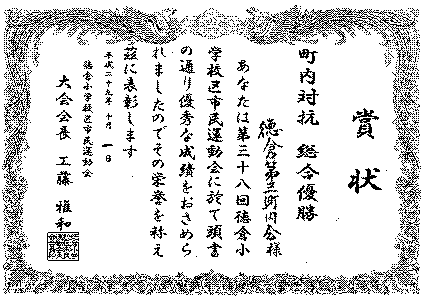 賞状
町内対抗 総合優勝
徳倉第三町内会様
あなたは第三十八回徳倉小
学校区市民運動会に於て頭書
の通り優秀な成績をおさめら
れましたのでその栄誉を称え
茲に表彰します
平成二十九年十月一日
徳倉小学校区市民運動会
大会会長 工藤雅和